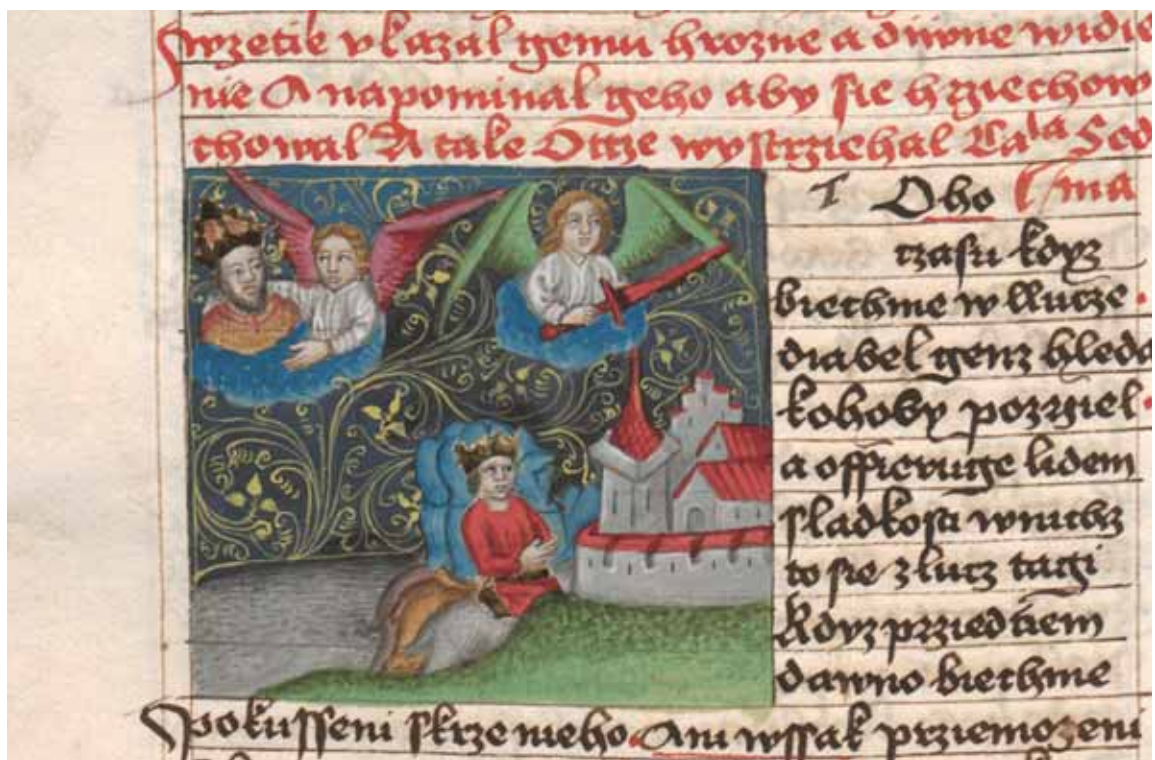 Swzetie vkazal gemu hrozne a diwne widie
nie A napominal geho aby sie hrziechow
chowal A take Ottze wystrziehal Cala Sed
Toho sma
czasu kdyz
biechme w Llucze
diabel genz hleda
kohoby pozrziel
a offieruge lidem
sladkosti wnichz
to sie zlucz tagi
Kdyz przied tiem
dawno biechme
Pokusseni skrze nieho Ani wssak przemozeni